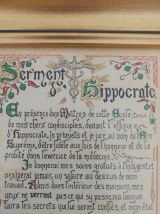 Serment
d'Hippocrate
En présence des Maîtres de cette École,
de mes chers condisciples, devant l'effigie
d'Hippocrate, je promets et je jure au nom de l'Être
Suprême, d'être fidèle aux lois de l'honneur et de la
probité dans l'exercice de la médecine. Je
donnerai mes soins gratuits à l'indigent et
n'exigerai jamais un salaire au dessus de mon
travail. Admis dans l'intérieur des maisons, mes
yeux ne verront pas ce qui s'y passe ma langue
taira les secrets qui lui seront confiés, et mon état